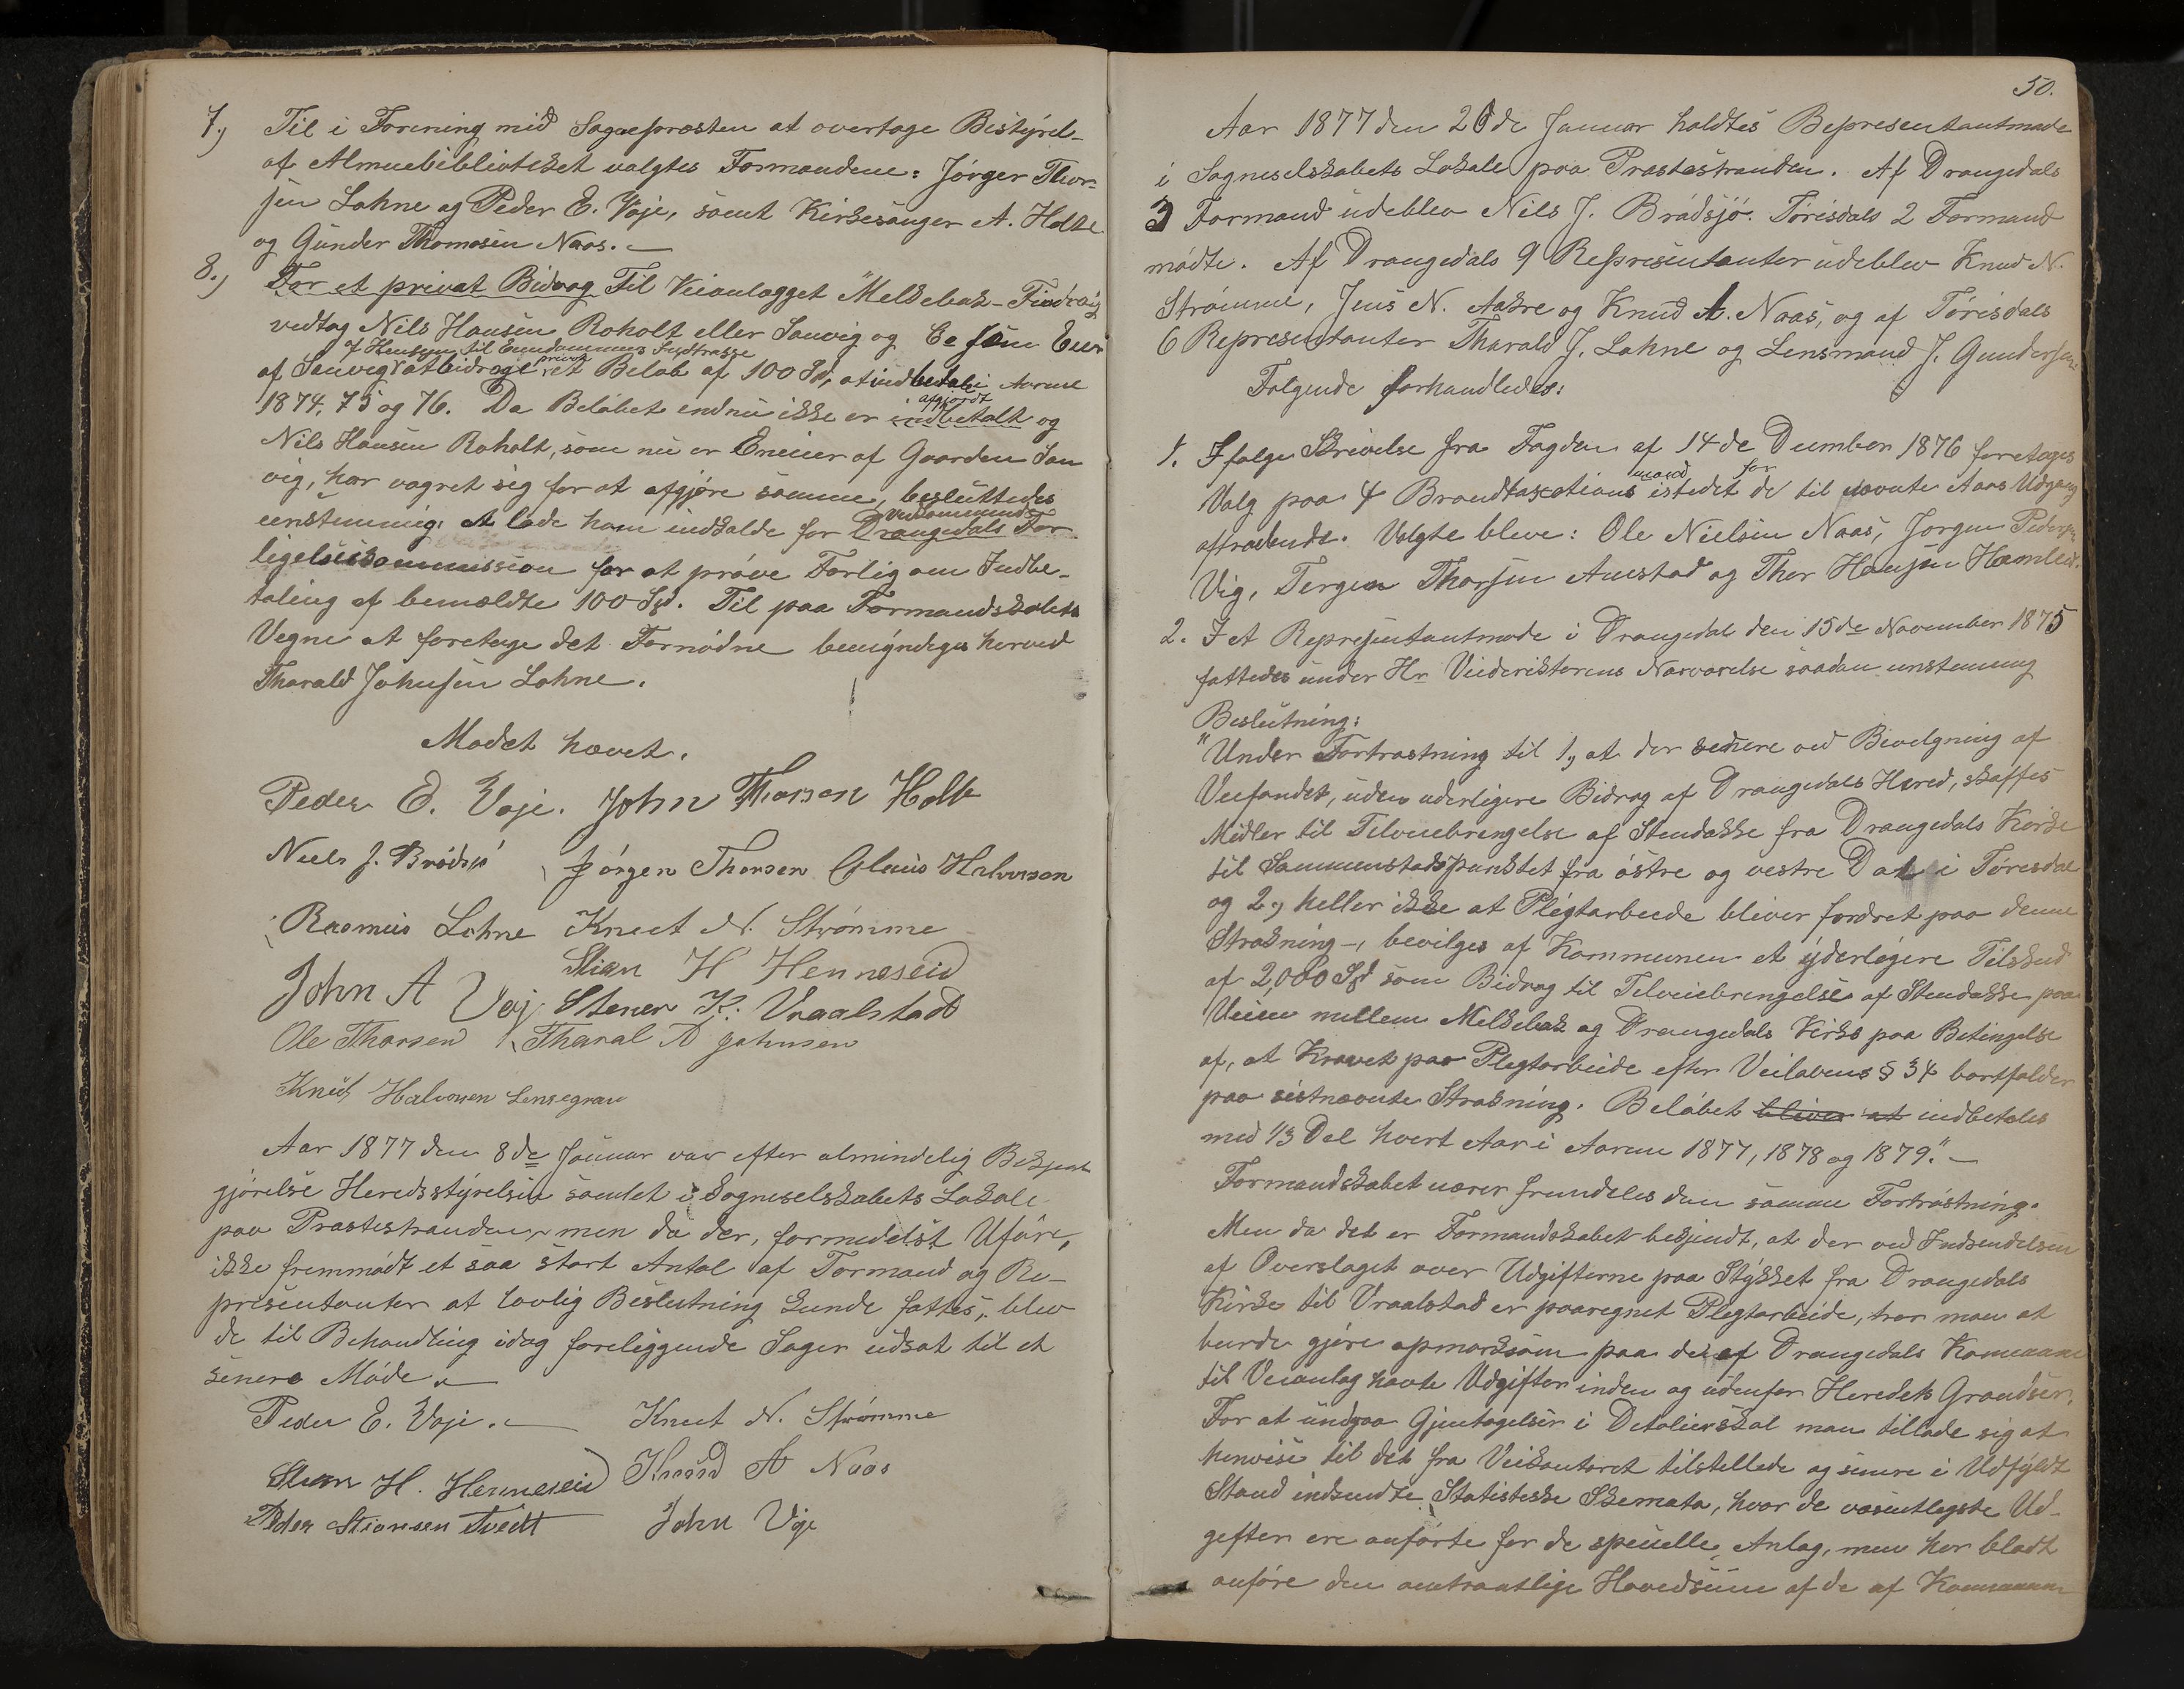 7.) Til i Forening med Sognepræsten at overtage Bestyrel-
af Almuebiblioteket valgtes Formændene: Jørgen Thor-
sen Lohne og Peder E. Voje, samt Kirkesanger A. Holte
og Gunder Thomesen Naas. —
8.) For et privat Bidrag Til Veianlægget "Melkebæk - Tindvig
vedtog Nils Hansen Roholt eller Sanvig og som Eier
af Hensyn til Eiendommens Indtrasse
af Sanvig at bidrage privat et Beløb af 100 Spd, at indbetale i Aarene
1874, 75 og 76. Da Beløbet endnu ikke er afgjordt indbetalt og
Nils Hansen Roholt, som nu er Eneeier af Gaarden San
vig, har vægret sig for at afgjøre samme, besluttedes
eenstemmig: At lade ham indkalde for vedkommende Drangedals For
ligelseskommission for at prøve Forlig om Indbe-
taling af bemældte 100 Spd. Til paa Formandskabets
Vegne at foretage det Fornødne bemyndiges herved
Tharald Johnsen Lohne.
Mødet hævet.
Peder E. Voje. John Thorsen Holte
Niels J. Brødsjø Jørgen Thorsen Claus Halvorsen
Rasmus Lohne Knut N. Strømme
Stian H Henneseid
John A Voj Stener K. Vraalstad
Ole Thorsen Tharal D Johnsen
Knud Halvorsen Lensegrav
Aar 1877 den 8de Januar var efter almindelig Bekjendt
gjørelse Heredsstyrelsen samlet i Sogneselskabets Lokale
paa Præstestranden, men da der, formedelst Uføre,
ikke fremmødt et saa stort Antal af Formænd og Re-
præsentanter at lovlig Beslutning kunde fattes, blev
de til Behandling idag foreliggende Sager udsat til et
senere Møde. —
Peder E. Voje. — Knut N. Strømme
Stian H. Henneseid Knud A Naas
Peder Stiansen Tvedt John Voje
50.
Aar 1877 den 26de Januar holdtes Repræsentantmøde
i Sogneselskabets Lokale paa Præstestranden. Af Drangedals
3 Formænd udeblev Nils J. Brødsjø. Tørisdals 2 Formænd
mødte. Af Drangedals 9 Repræsentanter udeblev Knud N.
Strømme, Jens N. Aakre og Knud A. Naas, og af Tørisdals
6 Repræsentanter Tharald J. Lohne og Lensmand J. Gundersen
Følgende forhandledes:
1. Ifølge Skrivelse fra Fogden af 14de December 1876 foretages
Valg paa 4 Brandtaxationsmænd istedet for de til nævnte Aars Udgang
aftrædende. Valgte bleve: Ole Nielsen Naas, Jørgen Pedersen
Vig, Tergen Thorsen Aaestad og Thor Hansen Hamled.
2. I et Repræsentantmøde i Drangedal den 15de November 1875
fattedes under Hr Veidirektørens Nærværelse saadan enstemmig
Beslutning:
"Under Fortrøstning til 1, at der senere ved Bevilgning af
Veifondet, uden yderligere Bidrag af Drangedals Hered, skaffes
Midler til Tilveiebringelse af Stendække fra Drangedals Kirke
til Sammenstødspunktet fra østre og vestre Dal i Tørisdal
og 2, heller ikke at Pligtarbeide bliver fordret paa denne
Strækning –, bevilges af Kommunen et yderligere Tilskud
af 2,000 Spd som Bidrag til Tilveiebringelse af Stendække paa
Veien mellem Melkebæk og Drangedals Kirke paa Betingelse
af, at Kravet paa Pligtarbeide efter Veilovens § 34 bortfalder
paa sistnævnte Strækning. Beløbet bliver at indbetales
med 1/3 Del hvert Aar i Aarene 1877, 1878 og 1879." —
Formandskabet nærer fremdeles den samme Fortrøstning.
Men da det er Formandskabet bekjendt, at der ved Indsendelsen
af Overslaget over Udgifterne paa Stykket fra Drangedals
Kirke til Vraalstad er paaregnet Pligtarbeide, tror man at
burde gjøre opmærksom paa de af Drangedals Kommune
til Veianlæg havte Udgifter inden og udenfor Heredets Grændser.
For at undgaa Gjentagelser i Detalier skal man tillade sig at
henvise til det fra Veikontoret tilstellede og senere i Udfyldt
Stand indsendte Statistiske Skemata, hvor de væsentligste Ud-
gifter ere anførte for de specielle Anlæg, men her bladt
anføre den omtrentlige Hovedsum af de af Kommunen